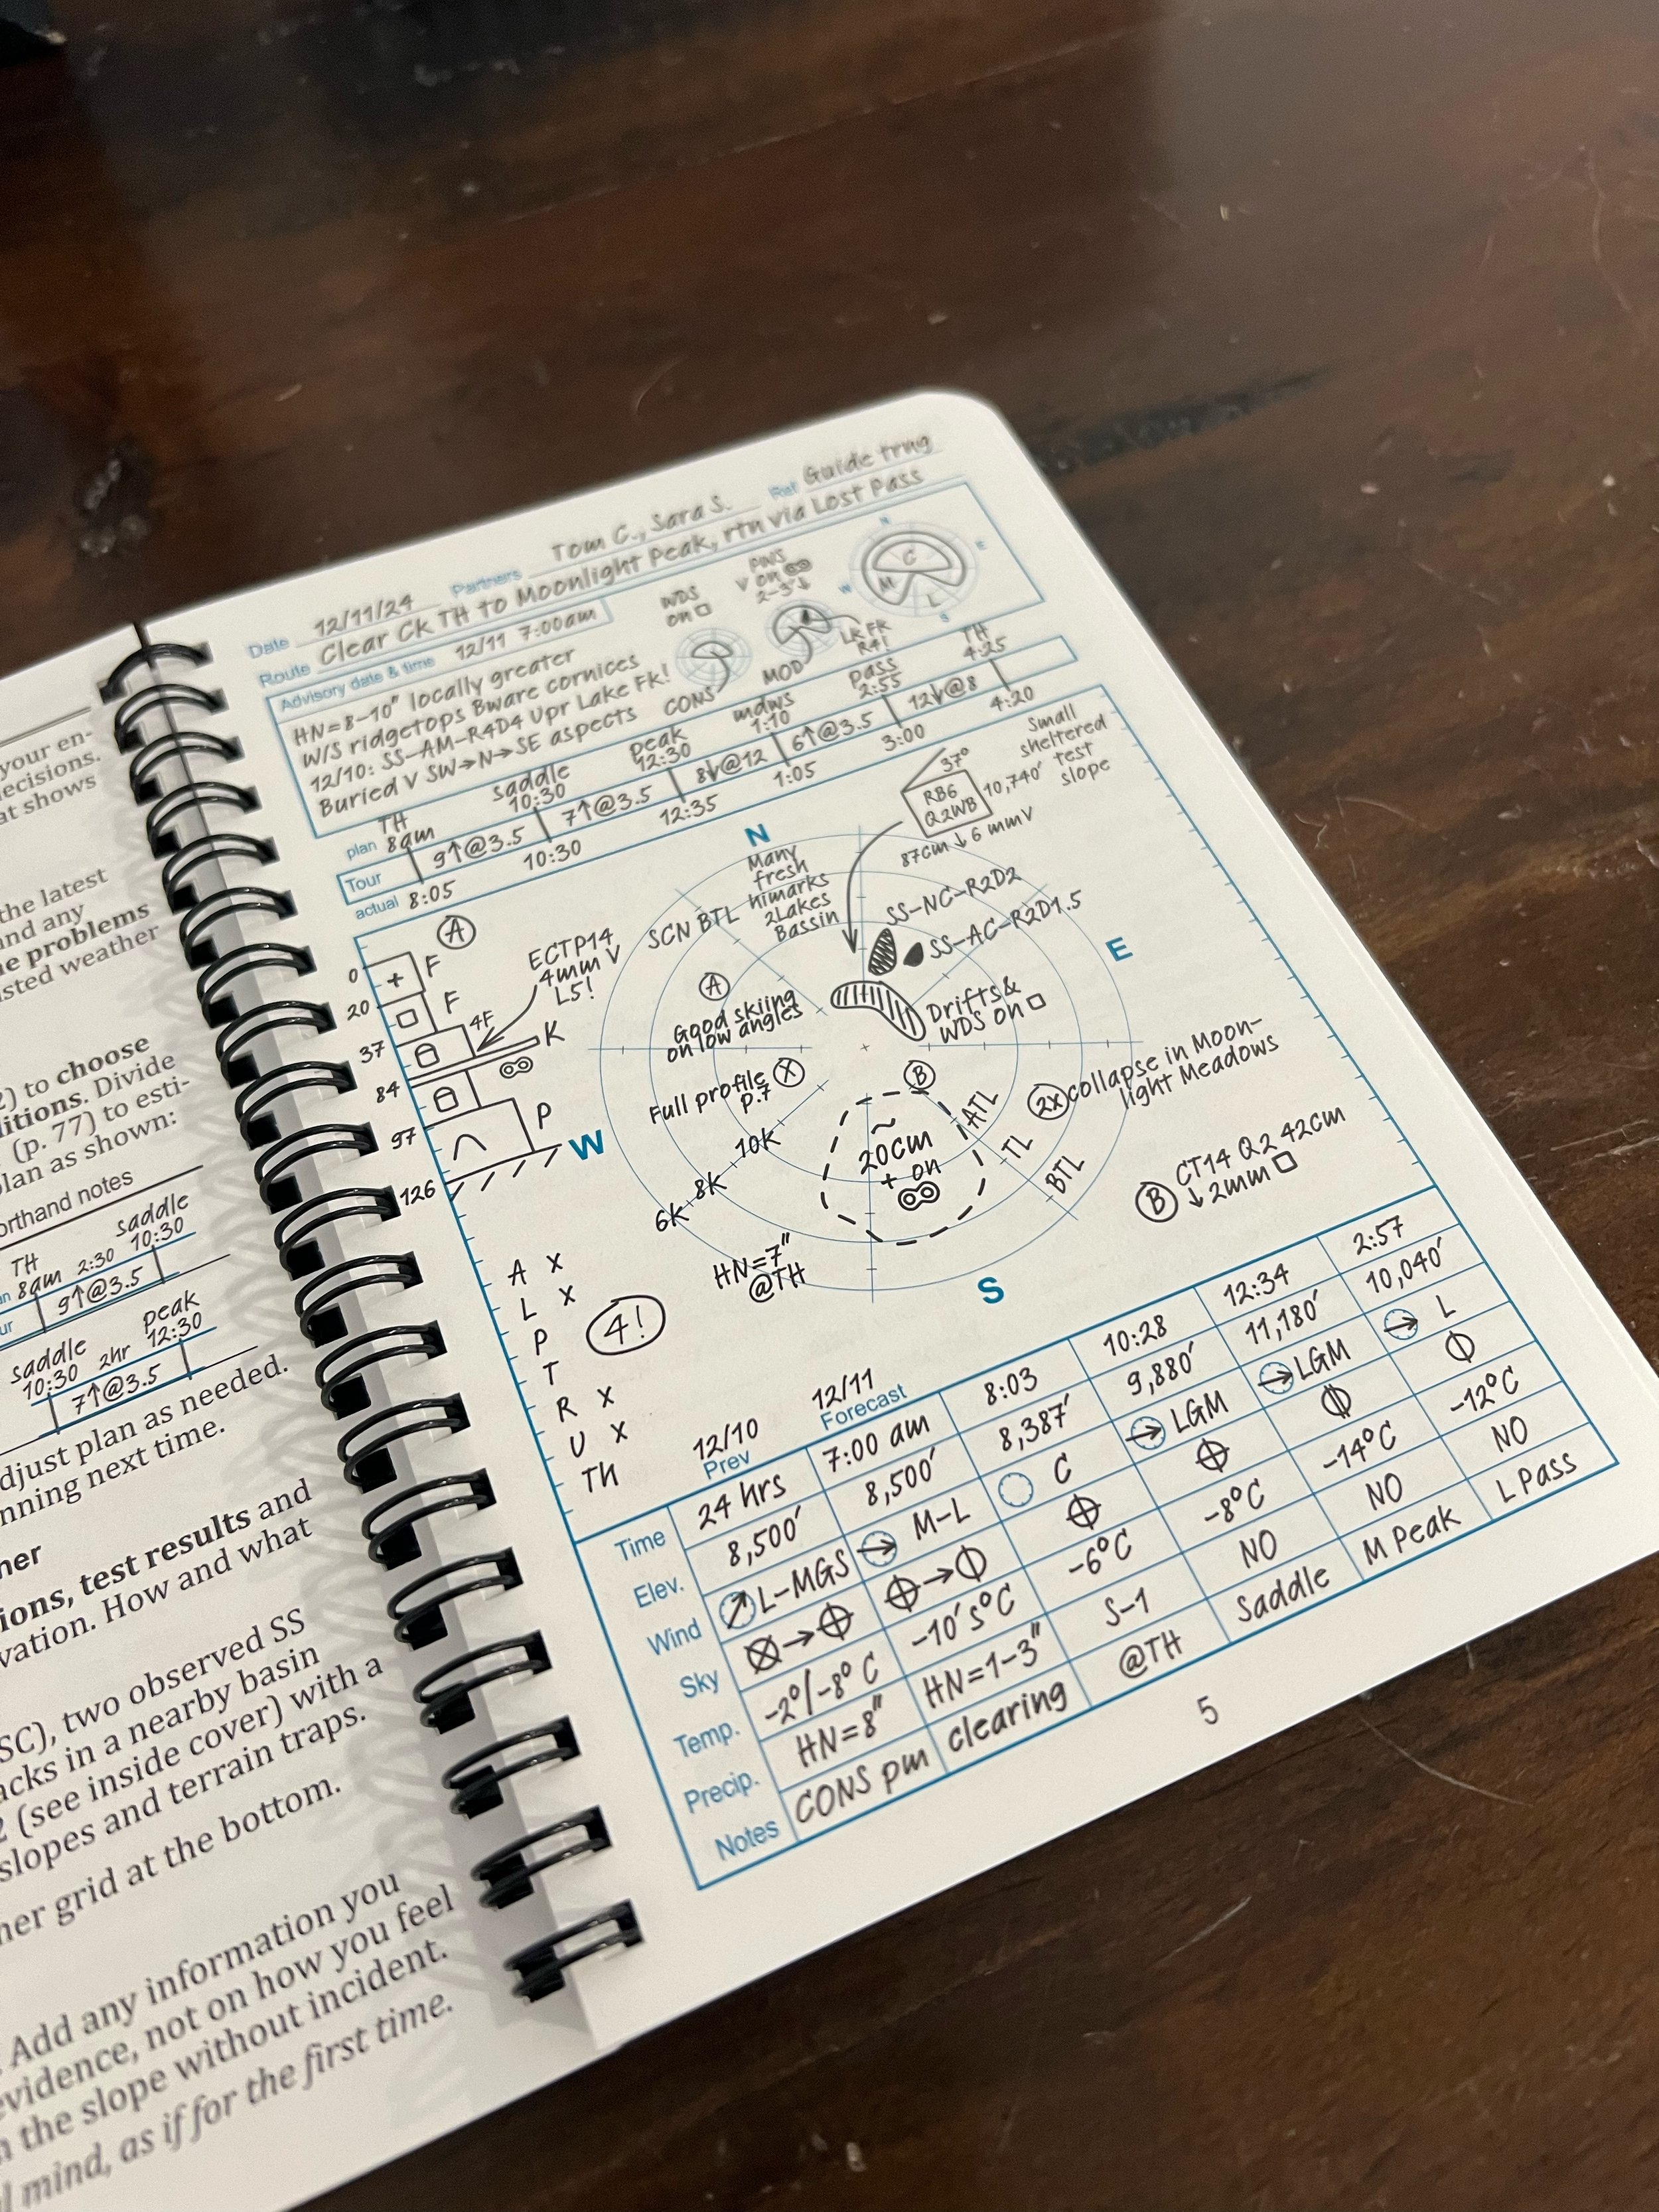 your en-
decisions.
at shows
the latest
and any
e problems
sted weather
2) to choose
ditions. Divide
(p. 77) to esti-
plan as shown:
orthand notes
TH
8am
2:30
saddle
10:30
9↑@3.5
saddle
10:30
2hr
peak
12:30
7↑@3.5
adjust plan as needed.
nning next time.
ner
ions, test results and
vation. How and what
SC), two observed SS
acks in a nearby basin
2 (see inside cover) with a
slopes and terrain traps.
her grid at the bottom.
Add any information you
evidence, not on how you feel
n the slope without incident.
l mind, as if for the first time.
Date 12/11/24 Partners Tom C., Sara S. Ref Guide trng
Route Clear Ck TH to Moonlight Peak, rtn via Lost Pass
Advisory date & time 12/11 7:00am
HN=8-10" locally greater
W/S ridgetops Bware cornices
12/10: SS-AM-R4D4 Upr Lake Fk!
Buried V SW→N→SE aspects
WDS
on □
CONS
PWS
V on
2-3'↓
MOD
LK FK
R4!
N
E
S
W
C
M
L
plan
TH
8am
saddle
10:30
peak
12:30
mdws
1:10
pass
2:55
TH
4:25
Tour 9↑@3.5 7↑@3.5 8↓@12 6↑@3.5 12↓@8
actual 8:05 10:30 12:35 1:05 3:00 4:20
A
0
20
37
84
97
126
+ F
□ F
4F
K
P
ECTP14
4mm V
L5!
N
E
S
W
SCN BTL
Many
fresh
himarks
2Lakes
Bassin
37°
RB6
Q2WB
10,740'
87cm ↓ 6 mmV
Small
sheltered
test
slope
SS-NC-R2D2
SS-AC-R2D1.5
Drifts &
WDS on □
A
Good skiing
on low angles
Full profile X
p.7
B
~
20cm
+ on
10K
8K
6K
ATL
TL
BTL
2x collapse in Moon-
light Meadows
B CT14 Q2 42cm
↓ 2mm □
HN=7"
@TH
A x
L x
P
T
R x
U x
Th
4!
12/10
Prev
12/11
Forecast
Time 24 hrs 7:00 am 8:03 10:28 12:34 2:57
Elev. 8,500' 8,500' 8,387' 9,880' 11,180' 10,040'
Wind L-MGS M-L C LGM LGM L
Sky → →
Temp. -2°/-8° C -10's°C -6°C -8°C -14°C -12°C
Precip. HN=8" HN=1-3" S-1 NO NO NO
Notes CONS pm clearing @TH Saddle M Peak L Pass
5